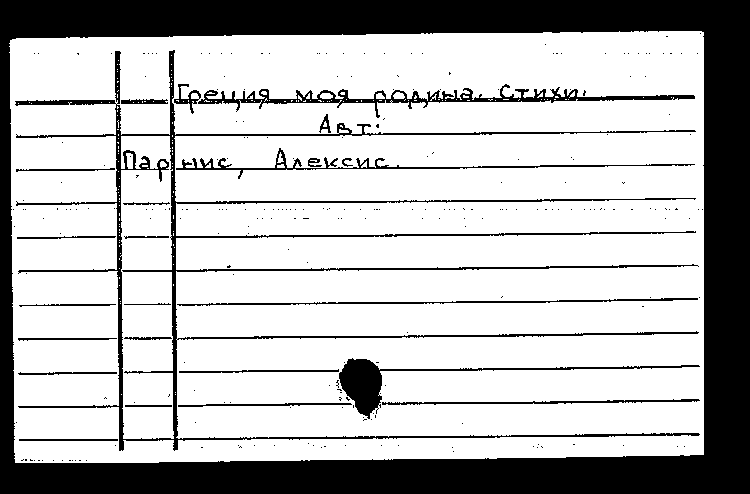 Греция моя родина. Стихи.
Авт:
Парнис, Алексис.